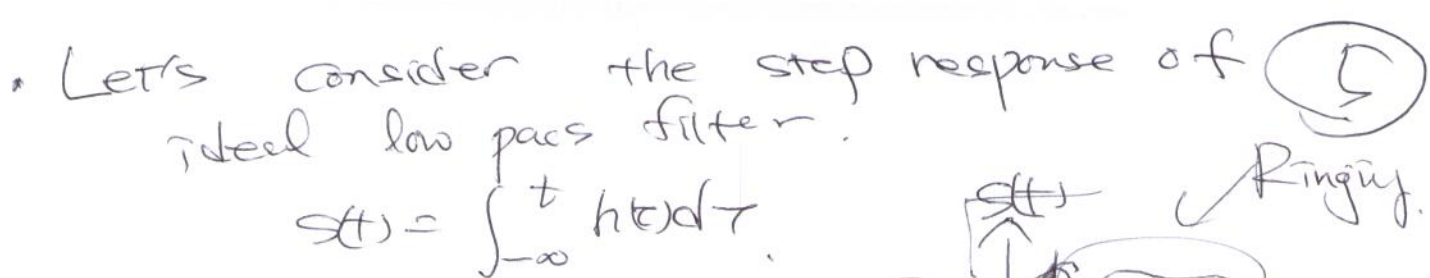 • Let's consider the step response of 5
ideal low pass filter.
s(t) = ∫_{-∞}^{t} h(τ)dτ.
s(t)
Ringing.